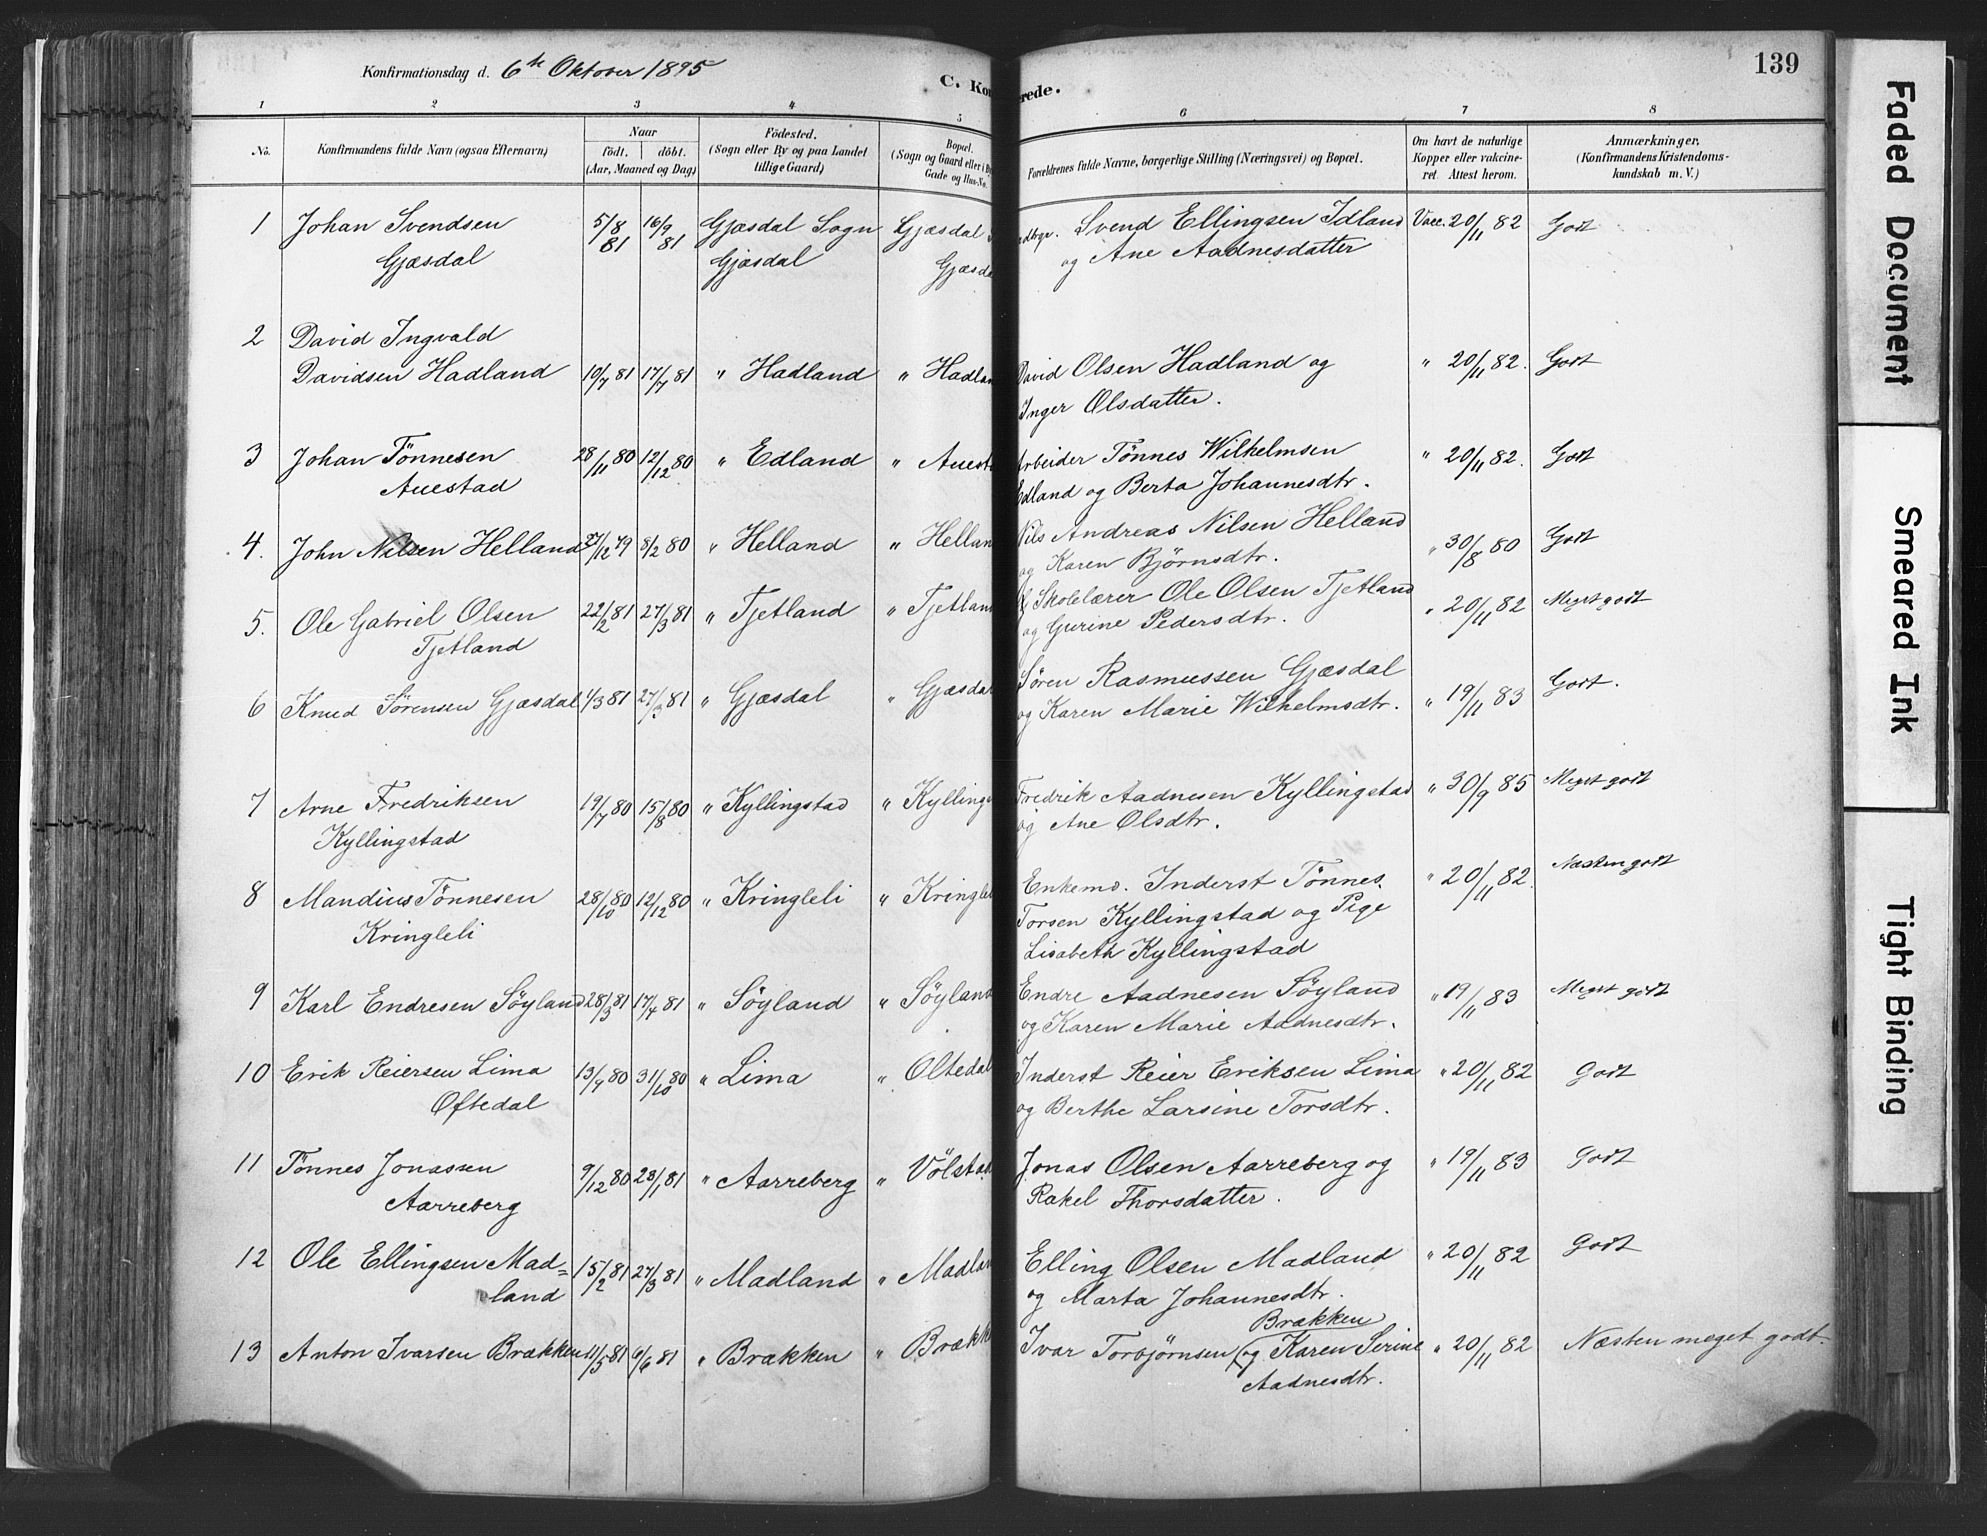 Konfirmationsdag d. 6te Oktober 1895
C. Kon rede.
139
1 2 3 4 5 6 7 8
No.
Konfirmandens fulde Navn (ogsaa Efternavn)
Naar
födt. döbt.
(Aar, Maaned og Dag)
Födested.
(Sogn eller By og paa Landet
tillige Gaard)
Bopæl.
(Sogn og Gaard eller i By
Gade og Hus-No.
Forældrenes fulde Navne, borgerlige Stilling (Næringsvei) og Bopæl.
Om havt de naturlige
Kopper eller vakcine-
ret. Attest herom.
Anmærkninger,
(Konfirmandens Kristendoms-
kundskab m. V.)
1 Johan Svendsen 5/8 81 16/9 81 Gjæsdal Sogn Gjæsdal Svend Ellingsen Idland Vacc. 20/11 82 Godt
Gjæsdal Gjæsdal Gjæsda og Ane Aadnesdatter
2 David Ingvald
Davidsen Hadland 10/7 81 17/7 81 " Hadland " Hadlan David Olsen Hadland og " 20/11 82. Godt
Inger Olsdatter.
3 Johan Tönnesen 28/11 80 12/12 80 " Edland " Auest Arbeider Tönnes Wilhelmsen " 20/11 82. Godt
Auestad Edland og Berta Johannesdtr.
4. John Nilsen Helland 27/12 79 8/2 80 " Helland " Hellan Nils Andreas Nilsen Helland " 30/8 80 Godt
og Karen Björnsdtr.
5. Ole Gabriel Olsen 22/2 81 27/3 81 " Tjetland " Tjetlan Skolelærer Ole Olsen Tjetland " 20/11 82 Meget godt
Tjetland og Gurine Pedersdtr.
6 Knud Sörensen Gjæsdal 1/3 81 27/3 81 " Gjæsdal " Gjæsdal Sören Rasmussen Gjæsdal " 19/11 83 Godt.
og Karen Marie Wilhelmsdtr.
7 Arne Fredriksen 19/7 80 15/8 80 " Kyllingstad " Kyllings Fredrik Aadnesen Kyllingstad " 30/9 85 Meget godt
Kyllingstad og Ane Olsdtr.
8 Mandius Tönnesen 28/10 80 12/12 80 " Kringleli " Kringlel Enkemd. Inderst Tönnes " 20/11 82. Næsten godt
Kringleli Torsen Kyllingstad og Pige
Lisabeth Kyllingstad
9 Karl Endresen Söyland 28/3 81 17/4 81 " Söyland " Söyland Endre Aadnesen Söyland " 19/11 83 Meget godt
og Karen Marie Aadnesdtr.
10 Erik Reiersen Lima 13/9 80 31/10 80 " Lima " Oltedal Inderst Reier Eriksen Lima " 20/11 82 Godt
Oftedal og Berthe Larsine Torsdtr.
11 Tönnes Jonassen 9/12 80 23/1 81 " Aarreberg " Völstad Jonas Olsen Aarreberg og " 19/11 83 Godt
Aarreberg Rakel Thorsdatter.
12 Ole Ellingsen Mad= 15/2 81 27/3 81 " Madland " Madlan Elling Olsen Madland " 20/11 82 Godt
land og Marta Johannesdtr.
Brækken
13 Anton Ivarsen Brækken 11/5 81 6/6 81 " Brækken " Brækk Ivar Torbjörnsen og Karen Serine " 20/11 82 Næsten meget godt.
Aadnesdtr.
Faded Document
Smeared Ink
Tight Binding